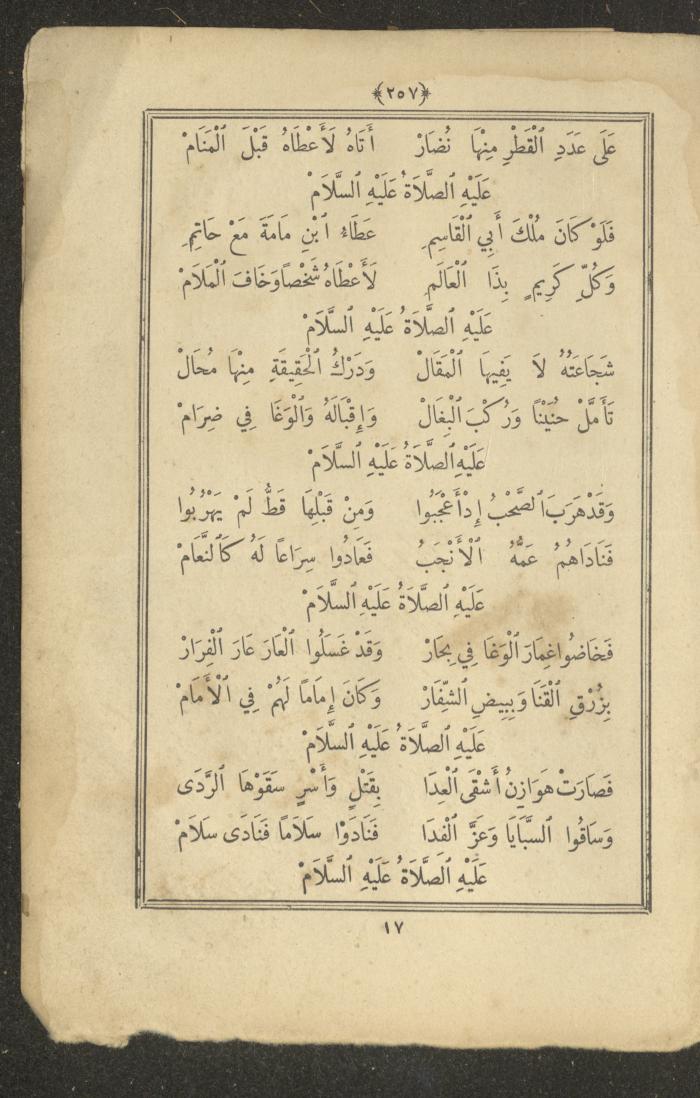 ﴿٢٥٧﴾
عَلَى عَدَدِ ٱلْقَطْرِ مِنْهَا نُضَارْ أَتَاهُ لَأَعْطَاهُ قَبْلَ ٱلْمَنَامْ
عَلَيْهِ ٱلصَّلَاةُ عَلَيْهِ ٱلسَّلَامْ
فَلَوْ كَانَ مُلْكَ أَبِي ٱلْقَاسِمِ عَطَاءُ ٱبْنِ مَامَةَ مَعْ حَاتِمِ
وَكُلِّ كَرِيمٍ بِذَا ٱلْعَالَمِ لَأَعْطَاهُ شَخْصًا وَخَافَ ٱلْمَلَامْ
عَلَيْهِ ٱلصَّلَاةُ عَلَيْهِ ٱلسَّلَامْ
شَجَاعَتُهُ لَا يَفِيهَا ٱلْمَقَالْ وَدَرْكُ ٱلْحَقِيقَةِ مِنْهَا مُحَالْ
تَأَمَّلْ حُنَيْنًا وَرُكْبَ ٱلْبِغَالْ وَإِقْبَالَهُ وَٱلْوَغَا فِي ضِرَامْ
عَلَيْهِ ٱلصَّلَاةُ عَلَيْهِ ٱلسَّلَامْ
وَقَدْ هَرَبَ ٱلصَّحْبُ إِذْ أُعْجِبُوا وَمِنْ قَبْلِهَا قَطُّ لَمْ يَهْرُبُوا
فَنَادَاهُمُ عَمُّهُ ٱلْأَنْجَبُ فَعَادُوا سِرَاعًا لَهُ كَٱلنَّعَامْ
عَلَيْهِ ٱلصَّلَاةُ عَلَيْهِ ٱلسَّلَامْ
فَخَاضُوا غِمَارَ ٱلْوَغَا فِي بِحَارْ وَقَدْ غَسَلُوا ٱلْعَارَ عَارَ ٱلْفِرَارْ
بِزُرْقِ ٱلْقَنَا وَبِبِيضِ ٱلشِّفَارْ وَكَانَ إِمَامًا لَهُمْ فِي ٱلْأَمَامْ
عَلَيْهِ ٱلصَّلَاةُ عَلَيْهِ ٱلسَّلَامْ
فَصَارَتْ هَوَازِنُ أَشْقَى ٱلْعِدَا بِقَتْلٍ وَأَسْرٍ سَقَوْهَا ٱلرَّدَى
وَسَاقُوا ٱلسَّبَايَا وَعَزَّ ٱلْفِدَا فَنَادَوْا سَلَامًا فَنَادَى سَلَامْ
عَلَيْهِ ٱلصَّلَاةُ عَلَيْهِ ٱلسَّلَامْ
١٧